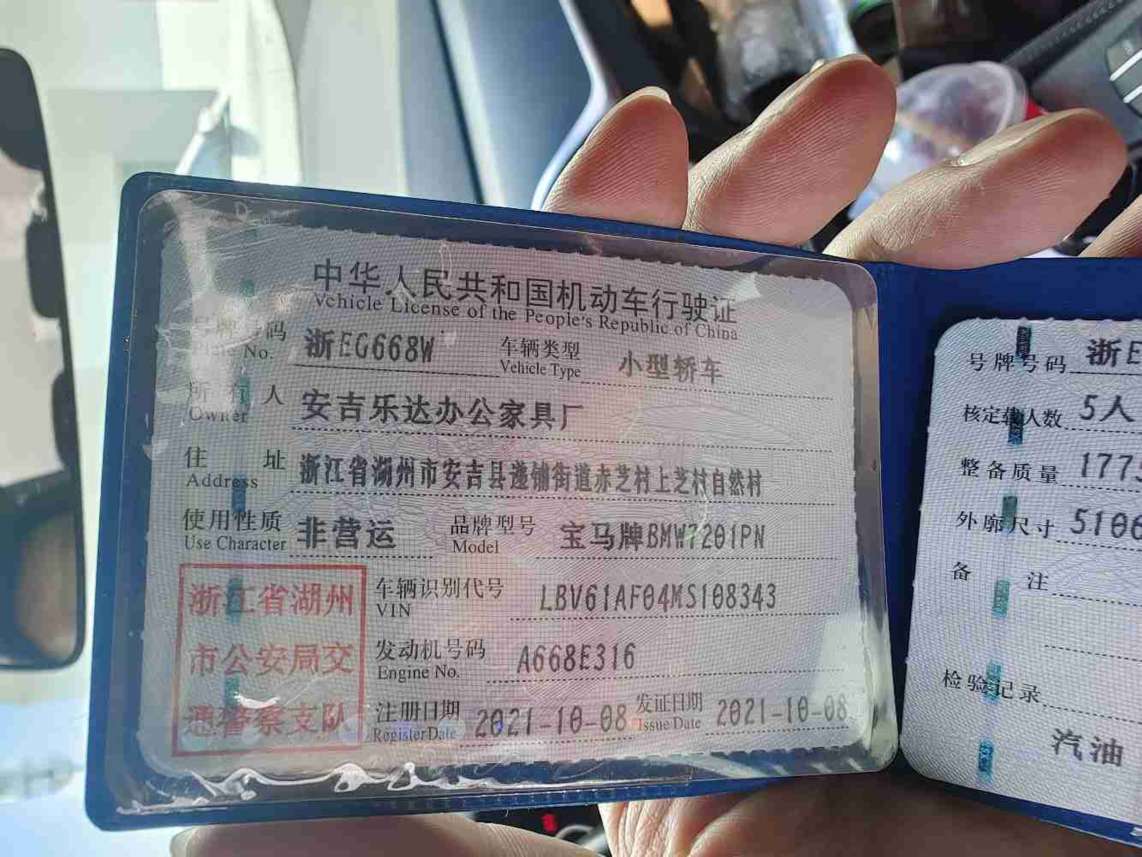 中华人民共和国机动车行驶证
Vehicle License of the People's Republic of China
号牌号码 浙EG668W 车辆类型 小型轿车
No. Vehicle Type
所有人 安吉乐达办公家具厂
Owner
住址 浙江省湖州市安吉县递铺街道赤芝村上芝村自然村
Address
使用性质 非营运 品牌型号 宝马牌BMW7201PN
Use Character Model
浙江省湖州
市公安局交
通警察支队
车辆识别代号 LBV61AF04MS108343
VIN
发动机号码 A668E316
Engine No.
注册日期 2021-10-08 发证日期 2021-10-08
Register Date Issue Date
号牌号码 浙E
核定载人数 5人
整备质量 177
外廓尺寸 510
备注
检验记录
汽油